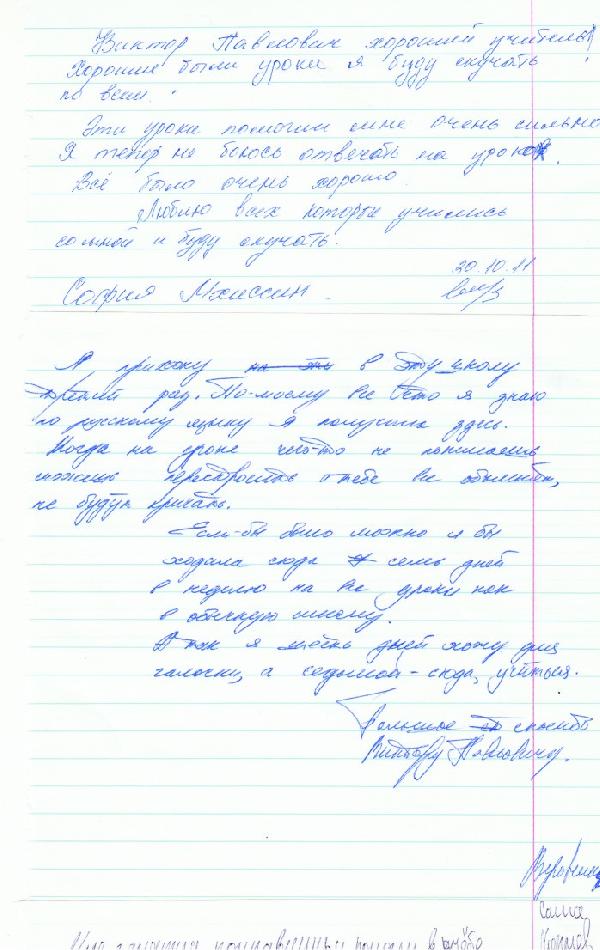 Виктор Павлович хороший учитель!
Хорошие были уроки я буду скучать
по всем!
Эти уроки помогли мне очень сильно
Я тепер не боюсь отвечать на уроках.
Всё было очень хорошо.
Люблю всех которые учились
со мной и буду скучать.
20.10.11
София
Я прихожу в эту школу
рад. По-моему все что я знаю
по русскому языку я получила здесь.
Когда на уроке чего-то не понимаешь
можешь переспросить и тебе все объяснят,
не будут кричать.
Если-бы было можно я бы
ходила сюда семь дней
в неделю на все уроки как
в обычную школу.
А так я шесть дней хожу для
галочки, а седьмой - сюда, учиться.
Большое спасибо
Виктору Павловичу.
Саша